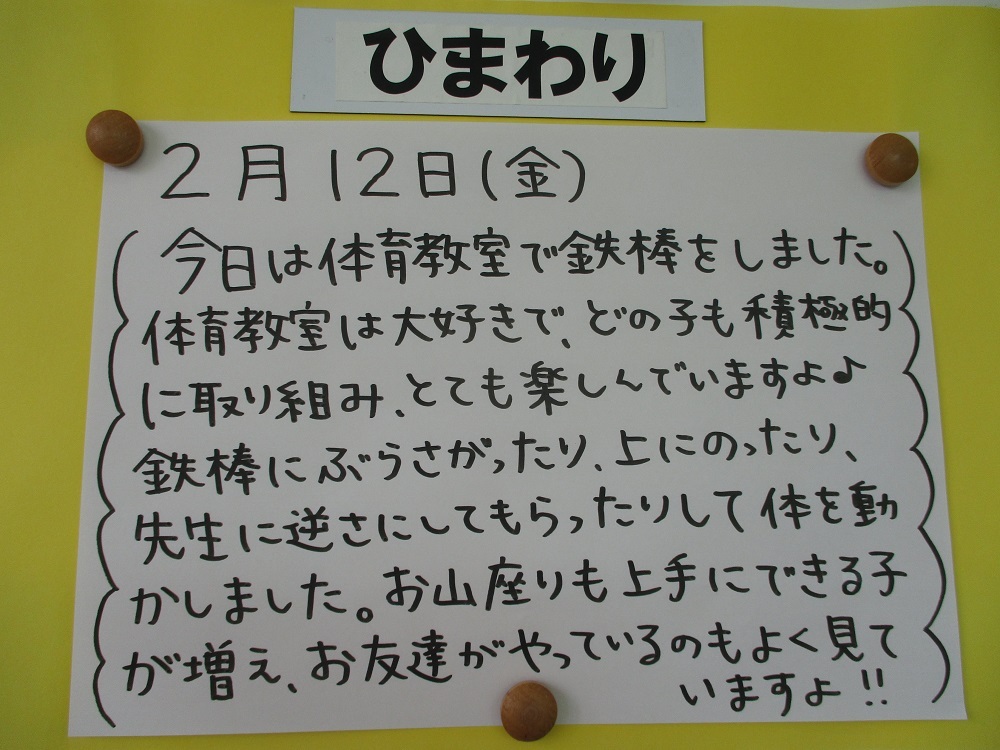 ひまわり
2月12日(金)
今日は体育教室で鉄棒をしました。
体育教室は大好きで、どの子も積極的
に取り組み、とても楽しんでいますよ♪
鉄棒にぶらさがったり、上にのったり、
先生に逆さにしてもらったりして体を動
かしました。お山座りも上手にできる子
が増え、お友達がやっているのもよく見て
いますよ!!